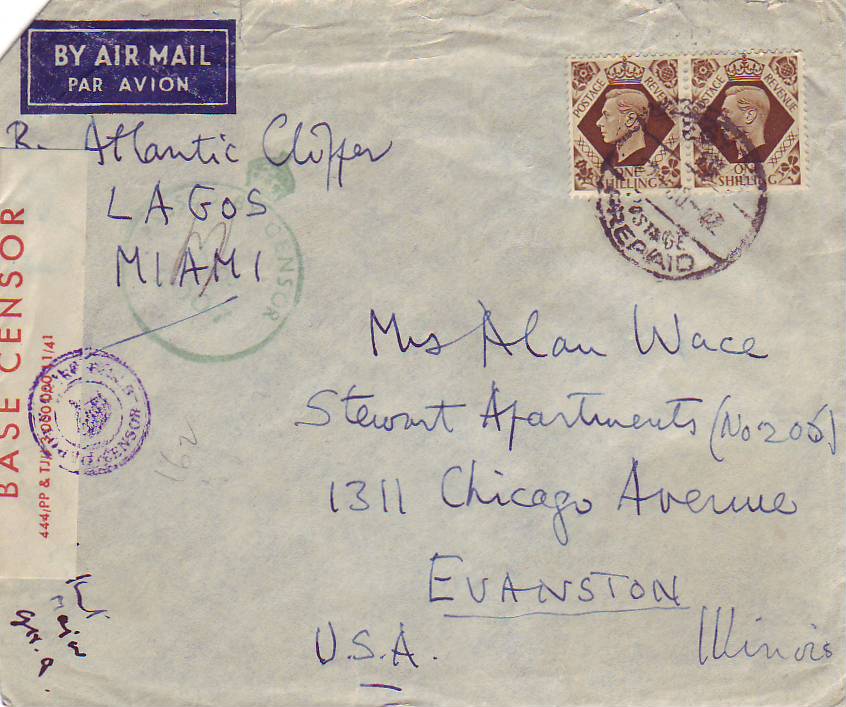 BY AIR MAIL
PAR AVION
POSTAGE REVENUE
ONE SHILLING
POSTAGE REVENUE
ONE SHILLING
POSTAGE
PREPAID
Atlantic Clipper
LAGOS
MIAMI
CENSOR
BASE CENSOR
444/PP & 11/41
CENSOR
162
Mrs Alan Wace
Stewart Apartments (No 206)
1311 Chicago Avenue
EVANSTON
U.S.A. Illinois
Major